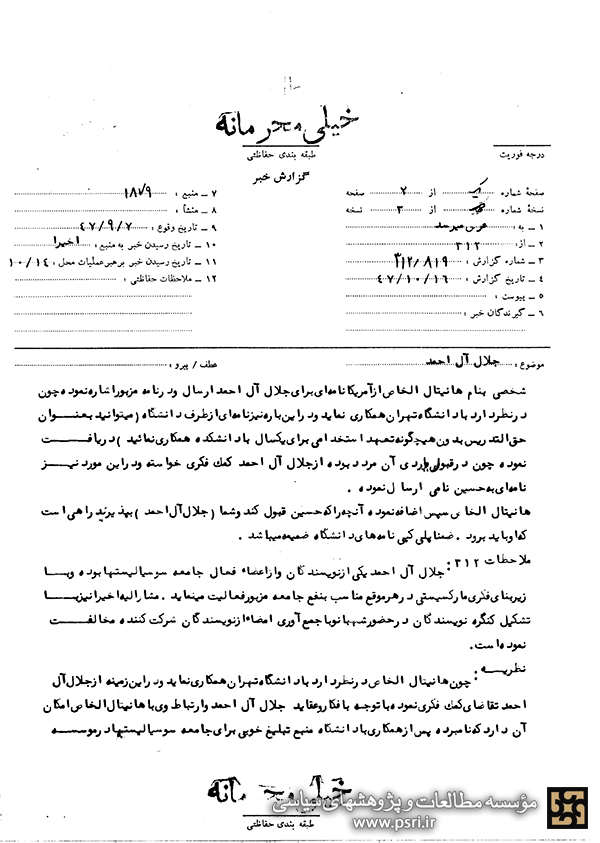 خیلی محرمانه
طبقه بندی حفاظتی
درجه فوریت
گزارش خبر
صفحهٔ شماره یک از ۲ صفحه
نسخهٔ شماره از ۳ نسخه
۱ ـ به : عرض میرسد
۲ ـ از : ۳۱۲
۳ ـ شماره گزارش : ۳۱۲/۸۱۹
۴ ـ تاریخ گزارش : ۴۷/۱۰/۱۶
۵ ـ پیوست :
۶ ـ گیرندگان خبر :
۷ ـ منبع : ۱۸۷۹
۸ ـ منشأ :
۹ ـ تاریخ وقوع : ۴۷/۹/۷
۱۰ ـ تاریخ رسیدن خبر به منبع : اخیرا
۱۱ ـ تاریخ رسیدن خبر برهبر عملیات محل : ۱۰/۱۴
۱۲ ـ ملاحظات حفاظتی :
موضوع : جلال آل احمد
عطف / پیرو :
شخصی بنام هانیتال الخاص از آمریکا نامه‌ای برای جلال آل احمد ارسال و در نامه مزبور اشاره نموده چون
در نظر دارد با دانشگاه تهران همکاری نماید و در این باره نیز نامه‌ای از طرف دانشگاه (میتوانید بعنوان
حق التدریس بدون هیچگونه تعهد استخدامی برای یکسال با دانشکده همکاری نمائید ) دریافت
نموده چون در قبولی یا ردی آن مردد بوده از جلال آل احمد کمک فکری خواسته و در این مورد نیز
نامه‌ای به حسین نامی ارسال نموده .
هانیتال الخاص سپس اضافه نموده آنچه را که حسین قبول کند و شما (جلال آل احمد ) بپذیرید راهی است
که او باید برود . ضمنا پلی کپی نامه‌های دانشگاه ضمیمه میباشد .
ملاحظات ۳۱۲ : جلال آل احمد یکی از نویسندگان و از اعضاء فعال جامعه سوسیالیستها بوده و با
زیربنای فکری مارکسیستی در هر موقع مناسب بنفع جامعه مزبور فعالیت مینماید . مشارالیه اخیرا نیز با
تشکیل کنگره نویسندگان در حضور شهبانو با جمع آوری امضاء از نویسندگان شرکت کننده مخالفت
نموده است.
نظریه :
چون هانیتال الخاص در نظر دارد با دانشگاه تهران همکاری نماید و در این زمینه از جلال آل
احمد تقاضای کمک فکری نموده با توجه با فکار و عقاید جلال آل احمد و ارتباط وی با هانیتال الخاص امکان
آن دارد که نامبرده پس از همکاری با دانشگاه منبع تبلیغ خوبی برای جامعه سوسیالیستها در موسسه
خیلی محرمانه
طبقه بندی حفاظتی
مؤسسه مطالعات و پژوهشهای سیاسی
www.psri.ir